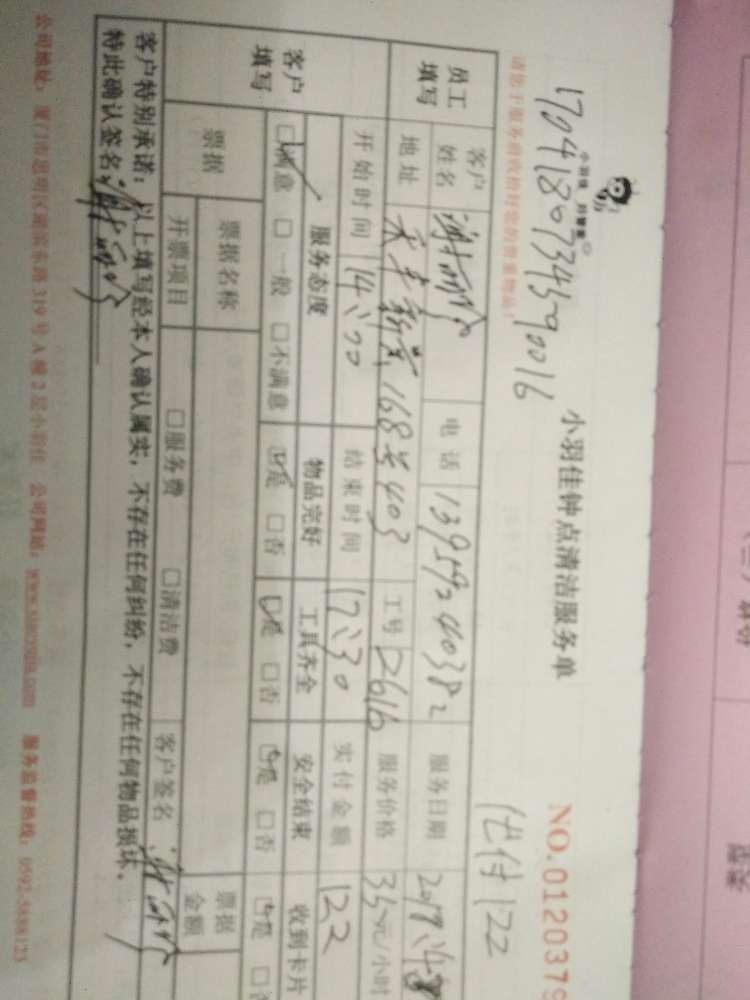 小羽佳钟点清洁服务单
NO.0120379
请您于服务前收捡好您的贵重物品!
代付122
员工填写
客户姓名
电话 13959240382
服务日期
地址 168号403
工号 D616
服务价格 35元/小时
开始时间 14:00
结束时间 17:30
实付金额 122
客户填写
服务态度 物品完好 工具齐全 安全结束 收到卡片
☑满意 □一般 □不满意 ☑是 □否 ☑是 □否 ☑是 □否 ☑是 □
票据 票据名称 票据金额
开票项目 □服务费 □清洁费 客户签名
客户特别承诺:以上填写经本人确认属实,不存在任何纠纷,不存在任何物品损坏。
特此确认签名:
公司地址: 厦门市思明区湖滨东路319号A幢2层小羽佳 公司网址: www.xiaoyujia.com 服务监督热线: 0592-5888123